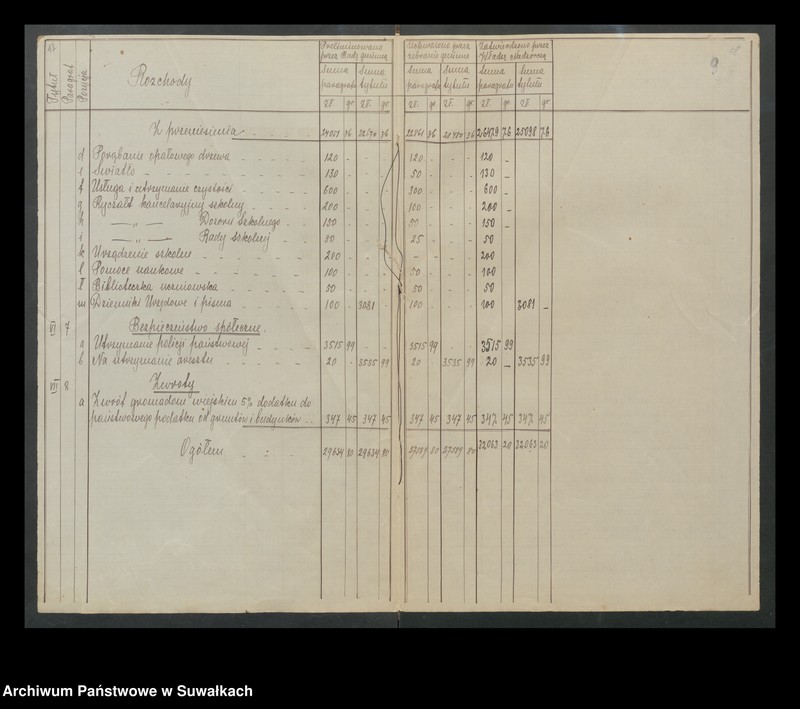 17
9
Tytuł Paragraf Pozycja
Rozchody
Preliminowano przez Radę gminną
Uchwalono przez zebranie gminne
Zatwierdzono przez Władzę nadzorczą
Suma paragrafu Suma tytułu Suma paragrafu Suma tytułu Suma paragrafu Suma tytułu
zł. gr. zł. gr. zł. gr. zł. gr. zł. gr. zł. gr.
Z przeniesienia 26479 76 25098 76
d Porąbanie opałowego drzewa 120 - 120 - 120 -
e Światło 130 - 50 - 130 -
f Usługa i utrzymanie czystości 600 - 300 - 600 -
g Ryczałt kancelaryjny szkolny 200 - 100 - 200 -
h —„— Dozoru Szkolnego 150 - 150 -
i —„— Rady szkolnej 50 - 25 - 50
k Urządzenie szkolne 200 - - - 200
l Pomoce naukowe 100 - 50 - 100
ł Biblioteczka uczniowska 50 - 50 - 50
m Dzienniki Urzędowe i pisma 100 - 3081 - 100 - 100 3081 -
VI 7 Bezpieczeństwo społeczne.
a Utrzymanie policji państwowej 3515 99 3515 99 3515 99
b Na utrzymanie aresztu 20 - 3535 99 20 3535 99 20 - 3535 99
VII 8 Zwroty
a Zwrot gromadom wiejskim 5% dodatku do
państwowego podatku od gruntów i budynków 347 45 347 45 347 45 347 45 347 45 347 45
Ogółem 29634 80 29634 80 32063 20 32063 20
Archiwum Państwowe w Suwałkach